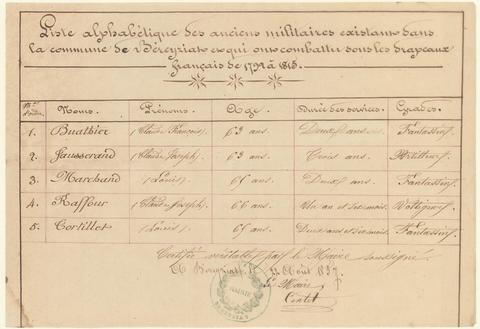 Liste alphabétique des anciens militaires existant dans
la commune de Béreyziat et qui ont combattu sous les drapeaux
français de 1792 à 1815.
Nos d'ordre. Noms. Prénoms. Age. Durée des services. Grades.
1. Buathier (Claude François). 63 ans. Deux ans. Fantassin.
2. Jausserand (Claude Joseph). 63 ans. Trois ans. Artilleur.
3. Marchand (Louis). 65 ans. Deux ans. Fantassin.
4. Raffour (Claude Joseph). 66 ans. Un an et six mois. Voltigeur.
5. Cortillet (Louis). 65 ans. Deux ans et six mois. Fantassin.
Certifié véritable par le Maire soussigné.
A Béreyziat, le 22 Août 1857.
Le Maire
MAIRIE